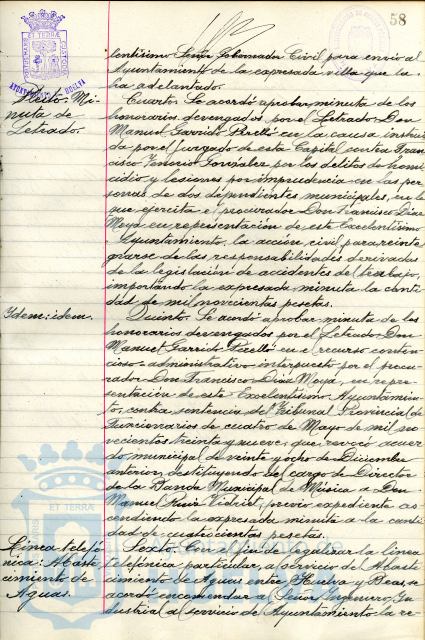 58
PORTUS MARIS ET TERRAE CUSTODIA
AYUNTAMIENTO HUELVA
lentísimo Señor Gobernador Civil para envío al
Ayuntamiento de la expresada villa que la
ha adelantado.
Pleito: Mi-
nuta de
Letrado.
Cuarto. Se acordó aprobar minuta de los
honorarios devengados por el Letrado Don
Manuel Garrido Perelló en la causa instrui
da por el Juzgado de esta Capital contra Fran
cisco Tenorio Gonzalez por los delitos de homi
cidio y lesiones por imprudencia en las per
sonas de dos dependientes municipales, en la
que ejercita el procurador Don Francisco Díaz
Moya en representación de este Excelentísimo
Ayuntamiento, la acción civil para reinte
grarse de las responsabilidades derivadas
de la legislación de accidentes del trabajo,
importando la expresada minuta la canti
dad de mil novecientas pesetas.
Idem: idem.
Quinto. Se acordó aprobar minuta de los
honorarios devengados por el Letrado Don
Manuel Garrido Perelló en el recurso conten
cioso-administrativo interpuesto por el procu
rador Don Francisco Díaz Moya, en repre
sentación de este Excelentísimo Ayuntamien
to, contra sentencia del Tribunal Provincial de
Funcionarios de cuatro de Mayo de mil no
vecientos treinta y nueve, que revocó acuer
do municipal de veinte y ocho de Diciembre
anterior, destituyendo del cargo de Director
de la Banda Municipal de Música a Don
Manuel Ruiz Vidriet, previo expediente as
cendiendo la expresada minuta a la canti
dad de cuatrocientas pesetas.
Línea telefó
nica: Abaste
cimiento de
Aguas.
Sexto. Con el fin de legalizar la línea
telefónica, particular, al servicio de Abaste
cimiento de Aguas entre Huelva y Beas, se
acordó encomendar al Señor Ingeniero In
dustrial al servicio del Ayuntamiento la re